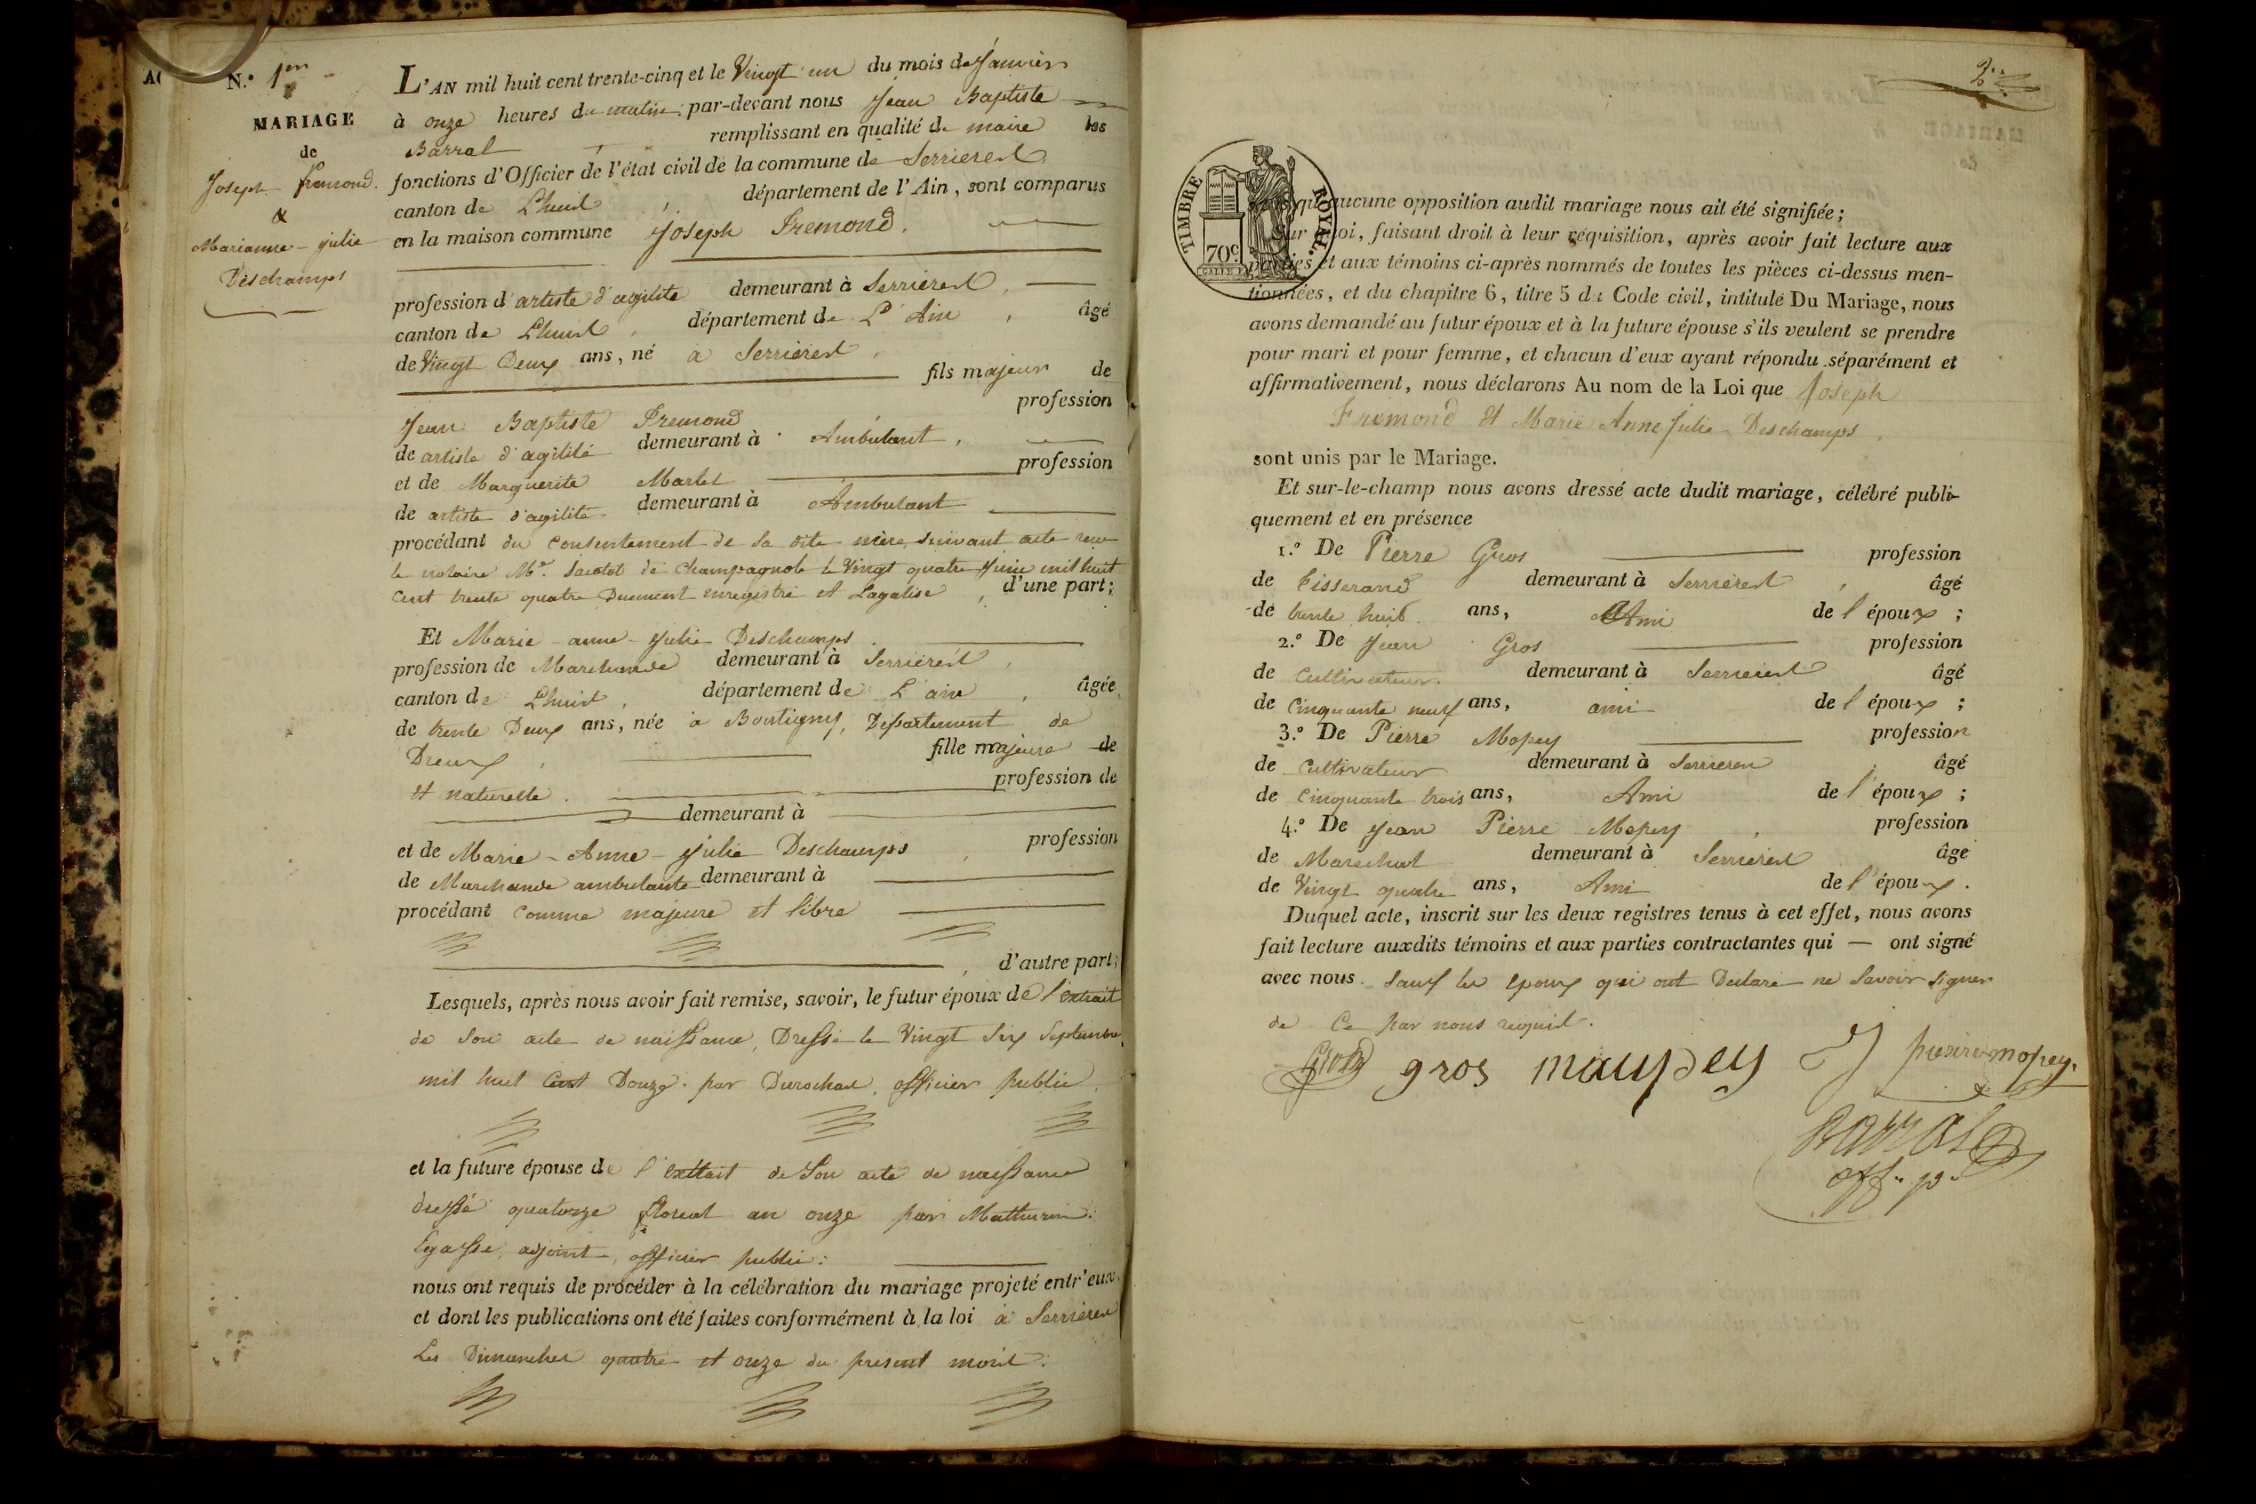 N.º 1er
MARIAGE
de
Joseph fremond.
&
Marianne-julie
Deschamps
L'AN mil huit cent trente-cinq et le Vingt un du mois de Janvier
à onze heures du matin par-devant nous Jean Baptiste
Barral remplissant en qualité de maire les
fonctions d'Officier de l'état civil de la commune de Serrieres
canton de Lhuis département de l'Ain, sont comparus
en la maison commune Joseph Fremond.
profession d'artiste d'agilité demeurant à Serrieres,
canton de Lhuis, département de L'Ain, âgé
de Vingt Deux ans, né à Serrieres,
fils majeur de
profession
Jean Baptiste Fremond
de artiste d'agilité demeurant à Ambulant,
profession
et de Marguerite Martet
de artiste d'agilité demeurant à Ambulant
procédant du consentement de sa dite mère, suivant acte recu
le notaire Me. de Champagnole le Vingt quatre Juin mil huit
cent trente quatre Duement enregistré et Legalisé, d'une part;
Et Marie-anne-julie Deschamps.
profession de Marchande demeurant à Serrieres,
canton de Lhuis, département de L'ain, âgée
de trente Deux ans, née à Boutigny, Département de
Dreux, fille majeure de
et naturelle. profession de
demeurant à
et de Marie-Anne-Julie Deschamps, profession
de Marchande ambulante demeurant à
procédant comme majeure et libre
, d'autre part;
Lesquels, après nous avoir fait remise, savoir, le futur époux de l'extrait
de son acte de naissance, Dressé le Vingt Six Septembre
mil huit Cent Douze par Durochat, officier public,
et la future épouse de l'extrait de Son acte de naissance
dressé quatorze floreal an onze par Mathurin
Egasse, adjoint, officier public:
nous ont requis de procéder à la célébration du mariage projeté entr'eux,
et dont les publications ont été faites conformément à la loi à Serrieres
Les Dimanches quatre et onze du présent mois:
2
TIMBRE ROYAL.
70c.
Sans qu'aucune opposition audit mariage nous ait été signifiée;
Sur quoi, faisant droit à leur réquisition, après avoir fait lecture aux
parties et aux témoins ci-après nommés de toutes les pièces ci-dessus men-
tionnées, et du chapitre 6, titre 5 du Code civil, intitulé Du Mariage, nous
avons demandé au futur époux et à la future épouse s'ils veulent se prendre
pour mari et pour femme, et chacun d'eux ayant répondu séparément et
affirmativement, nous déclarons Au nom de la Loi que Joseph
Fremond et Marie Anne Julie Deschamps,
sont unis par le Mariage.
Et sur-le-champ nous avons dressé acte dudit mariage, célébré publi-
quement et en présence
1.º De Pierre Gros profession
de tisserand demeurant à Serrieres, âgé
de trente huit ans, Ami de l'époux;
2.º De Jean Gros profession
de Cultivateur demeurant à Serrieres âgé
de Cinquante neuf ans, ami de l'époux;
3.º De Pierre Mopey profession
de Cultivateur demeurant à Serrieres âgé
de Cinquante trois ans, Ami de l'époux;
4.º De Jean Pierre Mopey, profession
de Marechal demeurant à Serrieres âgé
de Vingt quatre ans, Ami de l'époux.
Duquel acte, inscrit sur les deux registres tenus à cet effet, nous avons
fait lecture auxdits témoins et aux parties contractantes qui — ont signé
avec nous. Sauf les epoux qui ont Declaré ne Savoir signer
de Ce par nous requis.
Gros gros maupey pierre mopey.
Barral
off. p.